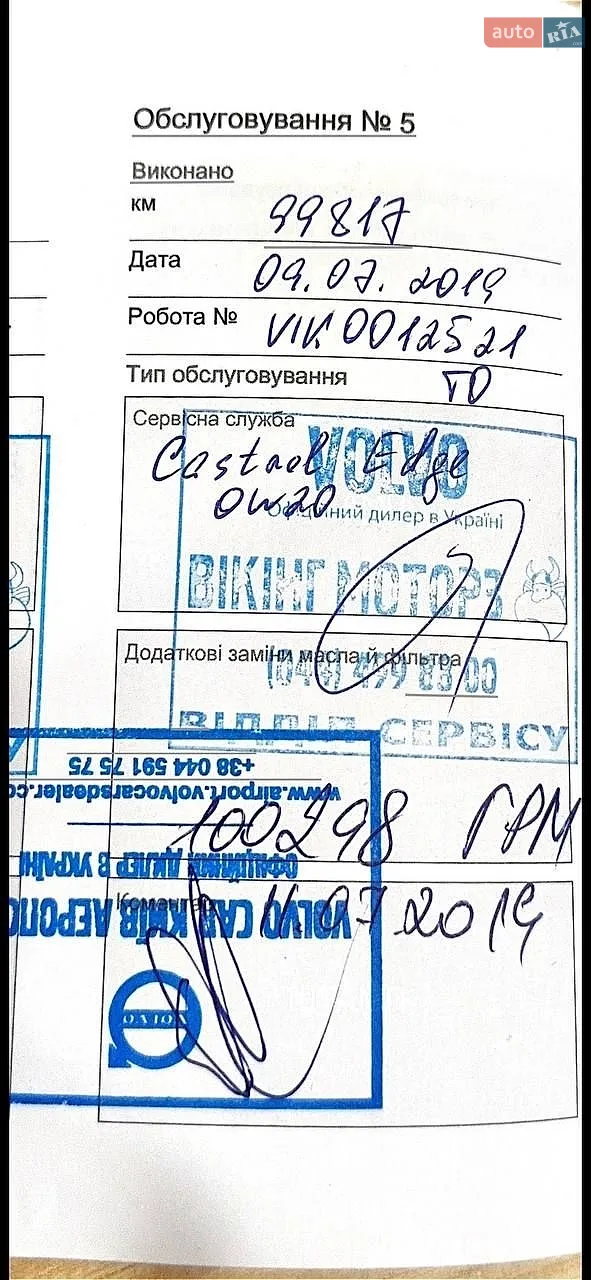 auto RIA
Обслуговування № 5
Виконано
км 99817
Дата 09.07.2019
Робота № VIK0012521
Тип обслуговування ТО
Сервісна служба
VOLVO
Castrol Edge
0w20
Офіційний дилер в Україні
ВІКІНГ МОТОРЗ
Додаткові заміни масла й фільтра
(048) 499 83 00
ВІДДІЛ СЕРВІСУ
+38 044 591 75 75
www.airport.volvocarsdealer.co
100298 ГРМ
ОФІЦІЙНИЙ ДИЛЕР В УКРАЇНІ
Коментар
VOLVO CAR КИЇВ АЕРОПО
11.07.2019
VOLVO